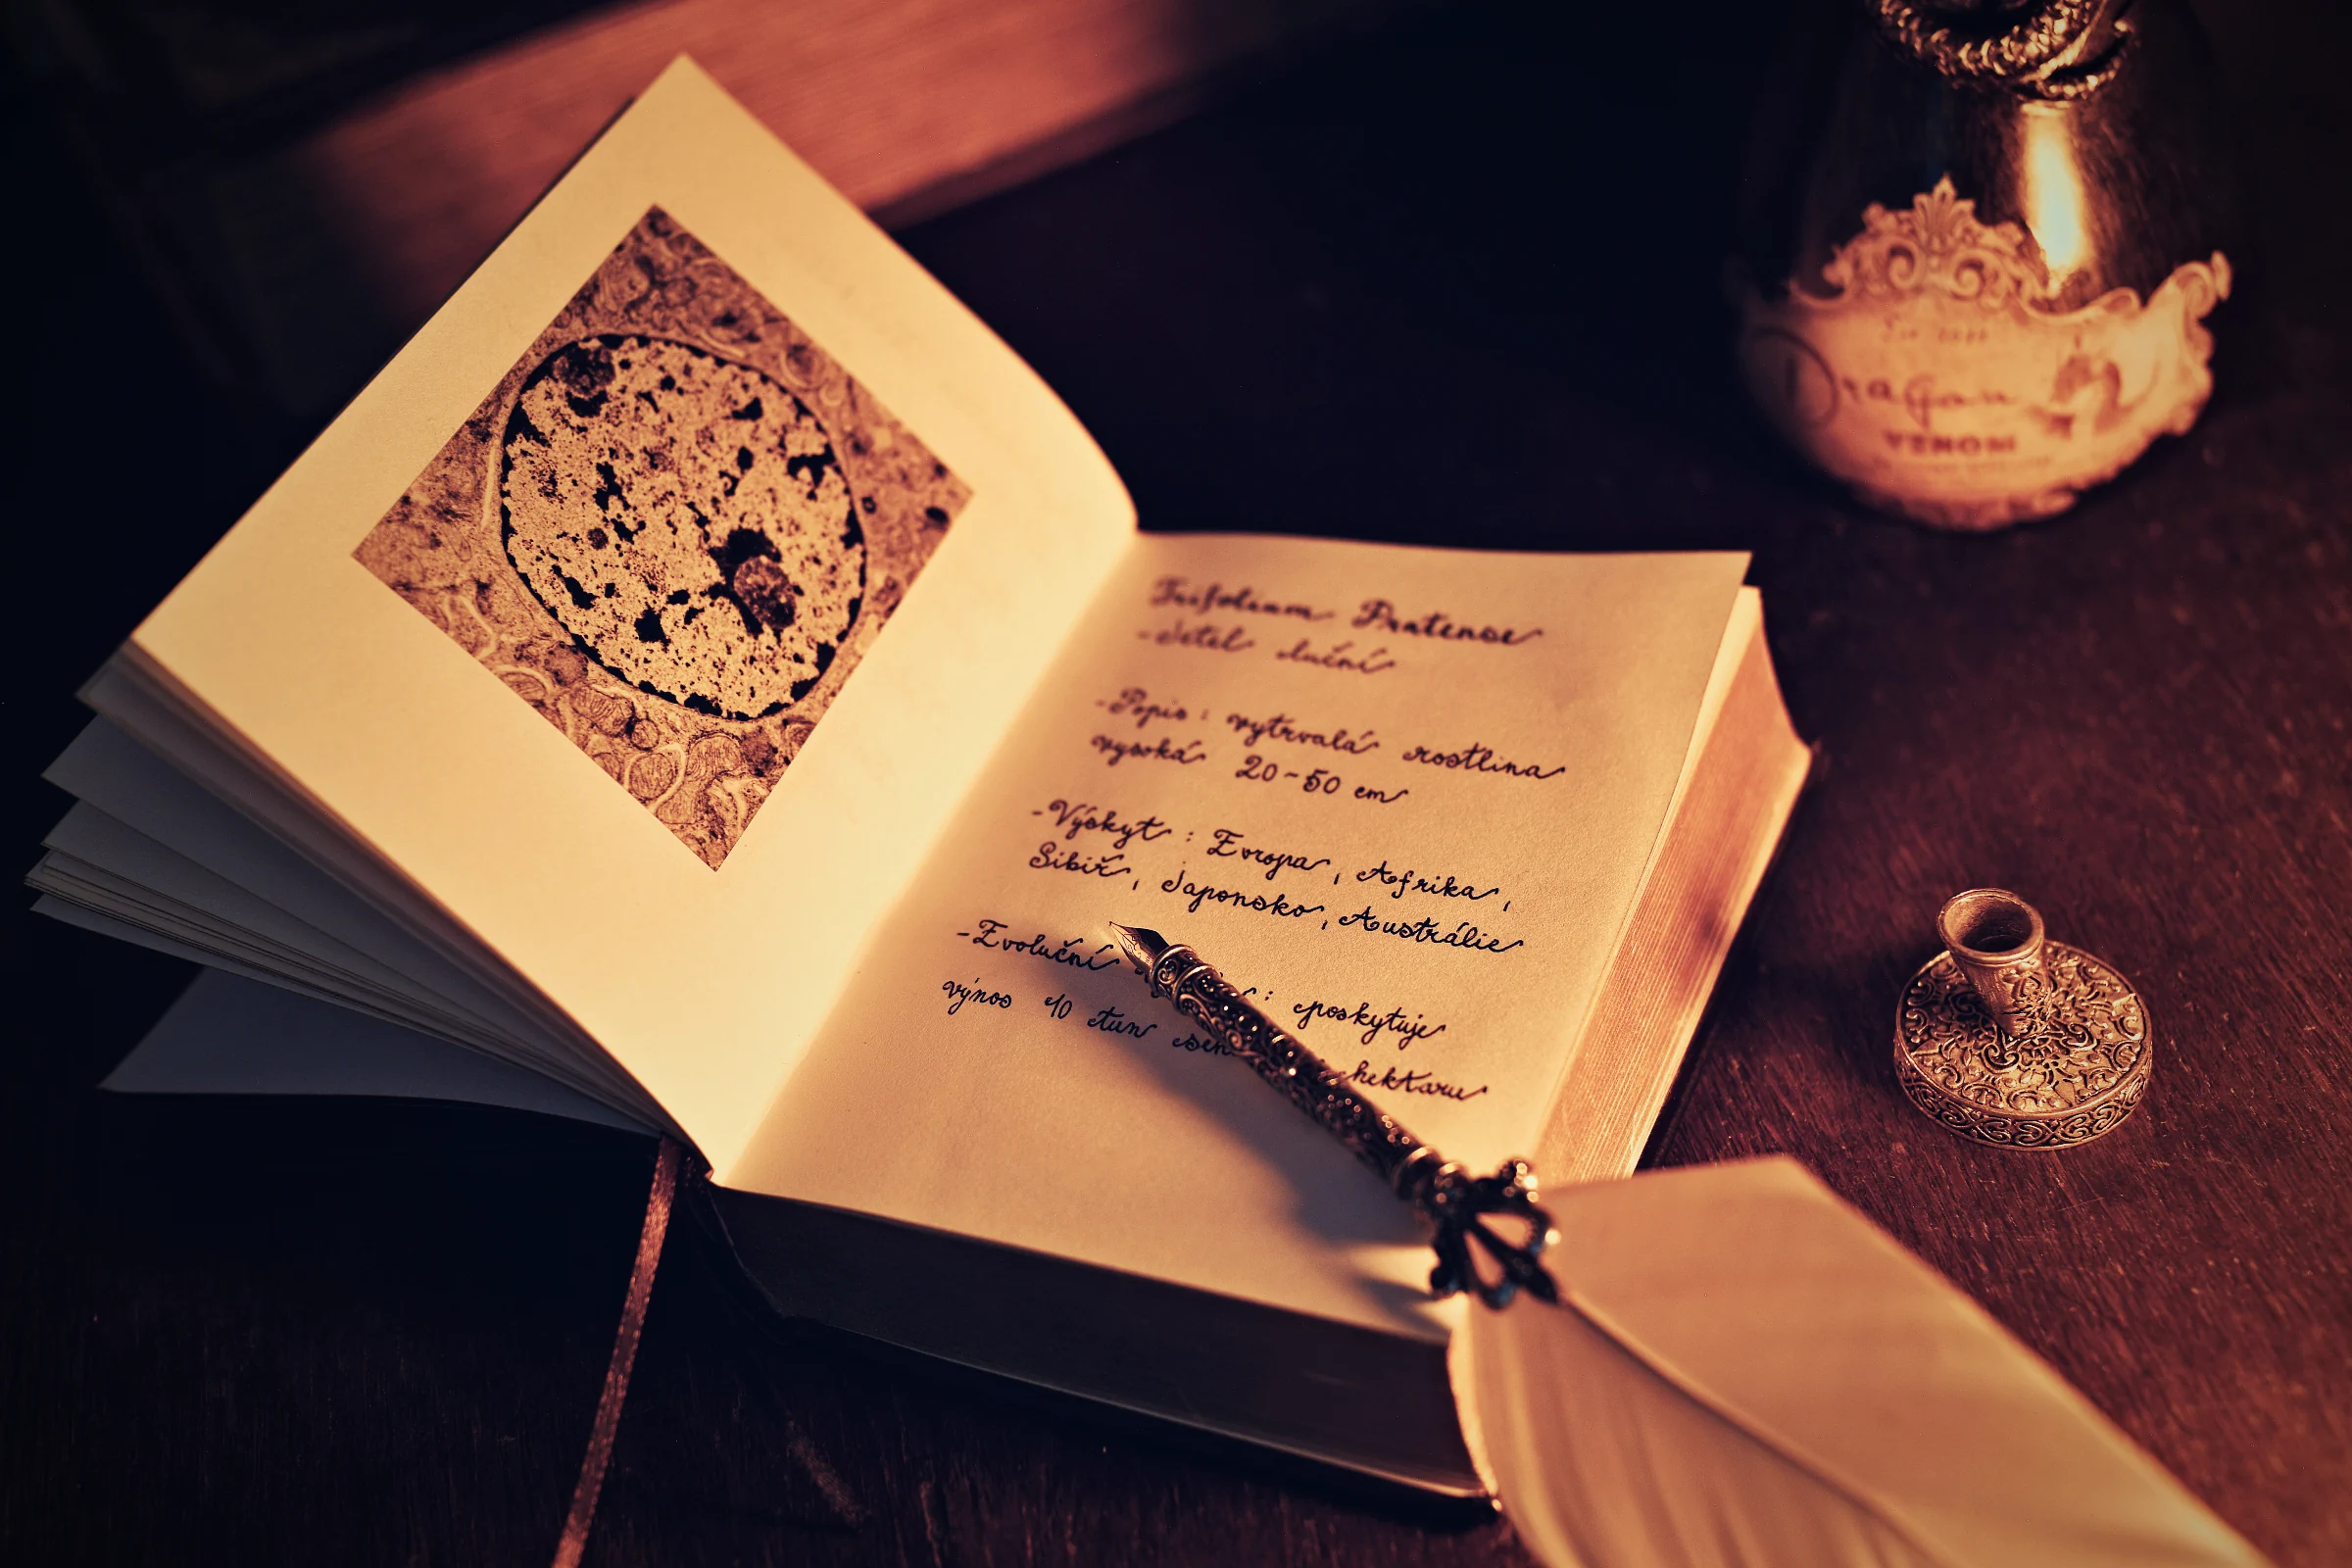 Trifolium Pratense
-Jetel luční
-Popis : vytrvalá rostlina
vysoká 20-50 cm
-Výskyt : Evropa, Afrika,
Sibiř, Japonsko, Austrálie
-Evoluční : poskytuje
výnos 10 tun hektaru
Dragon
VENOM